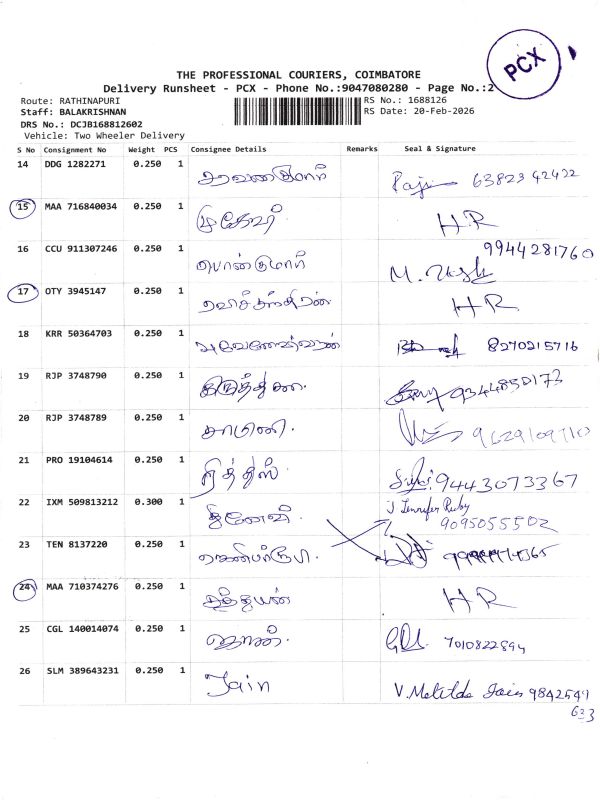 PCX
THE PROFESSIONAL COURIERS, COIMBATORE
Delivery Runsheet - PCX - Phone No.:9047080280 - Page No.:2
Route: RATHINAPURI
RS No.: 1688126
Staff: BALAKRISHNAN
RS Date: 20-Feb-2026
DRS No.: DCJB168812602
Vehicle: Two Wheeler Delivery
S No Consignment No Weight PCS Consignee Details Remarks Seal & Signature
14 DDG 1282271 0.250 1 சரவணகுமார் 63823 42422
15 MAA 716840034 0.250 1 H.R
16 CCU 911307246 0.250 1 பொன்குமார் 9944281760
17 OTY 3945147 0.250 1 ரவிச்சந்திரன் HR
18 KRR 50364703 0.250 1 8270215716
19 RJP 3748790 0.250 1 9344850173
20 RJP 3748789 0.250 1 சாமுனி. 9629109710
21 PRO 19104614 0.250 1 ரித்தீஸ். 9443073367
22 IXM 509813212 0.300 1 J Jennifer Ruby
9095055502
23 TEN 8137220 0.250 1
24 MAA 710374276 0.250 1 HR
25 CGL 140014074 0.250 1 ஜான். 7010822894
26 SLM 389643231 0.250 1 Jain V. Metilda Jain 9842541
633